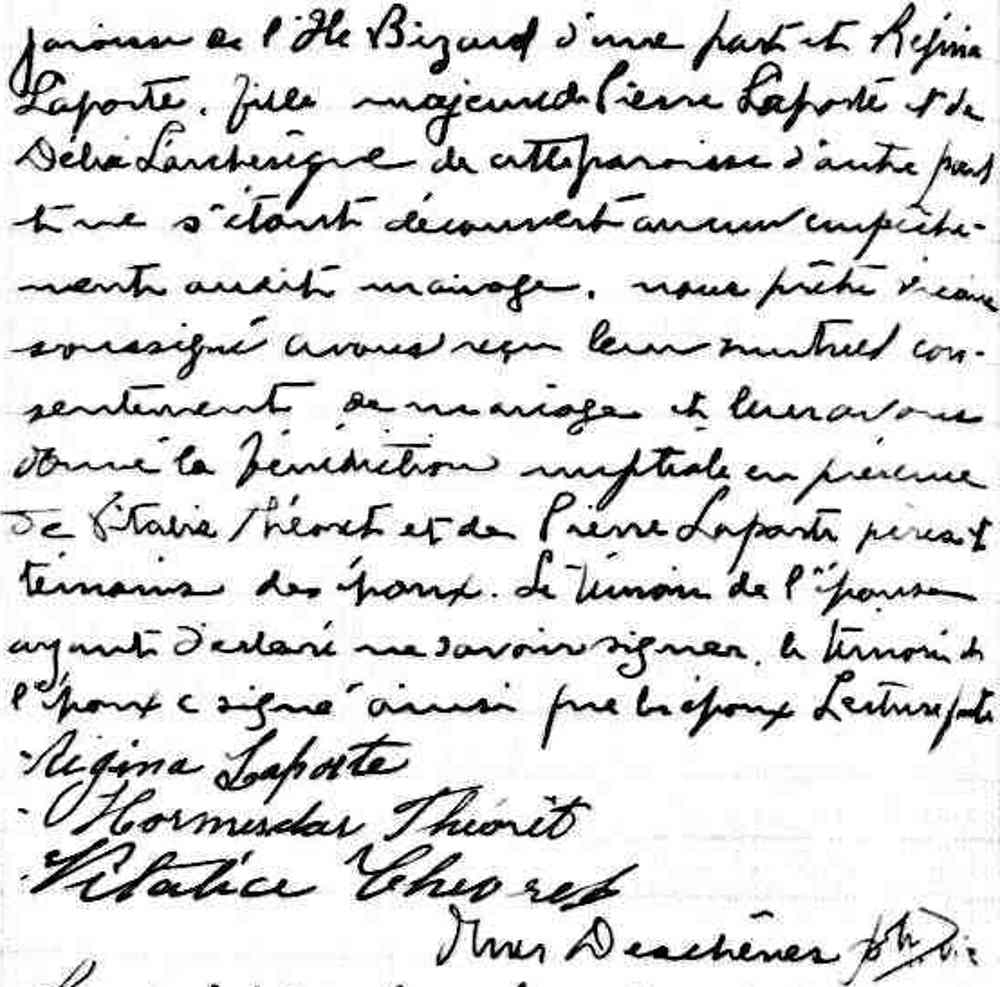 paroisse de l'Ile Bizard d'une part et Régina
Laporte, fille majeure de Pierre Laporte et de
Délia Larchevêque de cette paroisse d'autre part
et ne s'étant découvert aucun empêche-
ment audit mariage, nous prêtre vicaire
soussigné avons reçu leur mutuel con-
sentement de mariage et leur avons
donné la bénédiction nuptiale en présence
de Vitalie Théoret et de Pierre Laporte pères et
témoins des époux. Le témoin de l'épouse
ayant déclaré ne savoir signer, le témoin de
l'époux a signé ainsi que les époux Lecture faite
Régina Laporte
Hormisdas Théorêt
Vitalice Theoret
Deschênes ptre vic